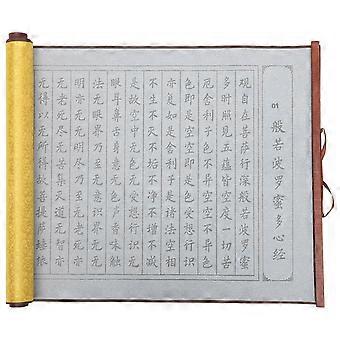 01 般若波罗蜜多心经
观自在菩萨行深般若波罗蜜
多时照见五蕴皆空度一切苦
厄舍利子色不异空空不异色
色即是空空即是色受想行识
亦复如是舍利子是诸法空相
不生不灭不垢不净不增不减
是故空中无色无受想行识无
眼耳鼻舌身意无色声香味触
法无眼界乃至无意识界无无
无老死尽无苦集灭道无智亦
无得以无所得故菩提萨埵依